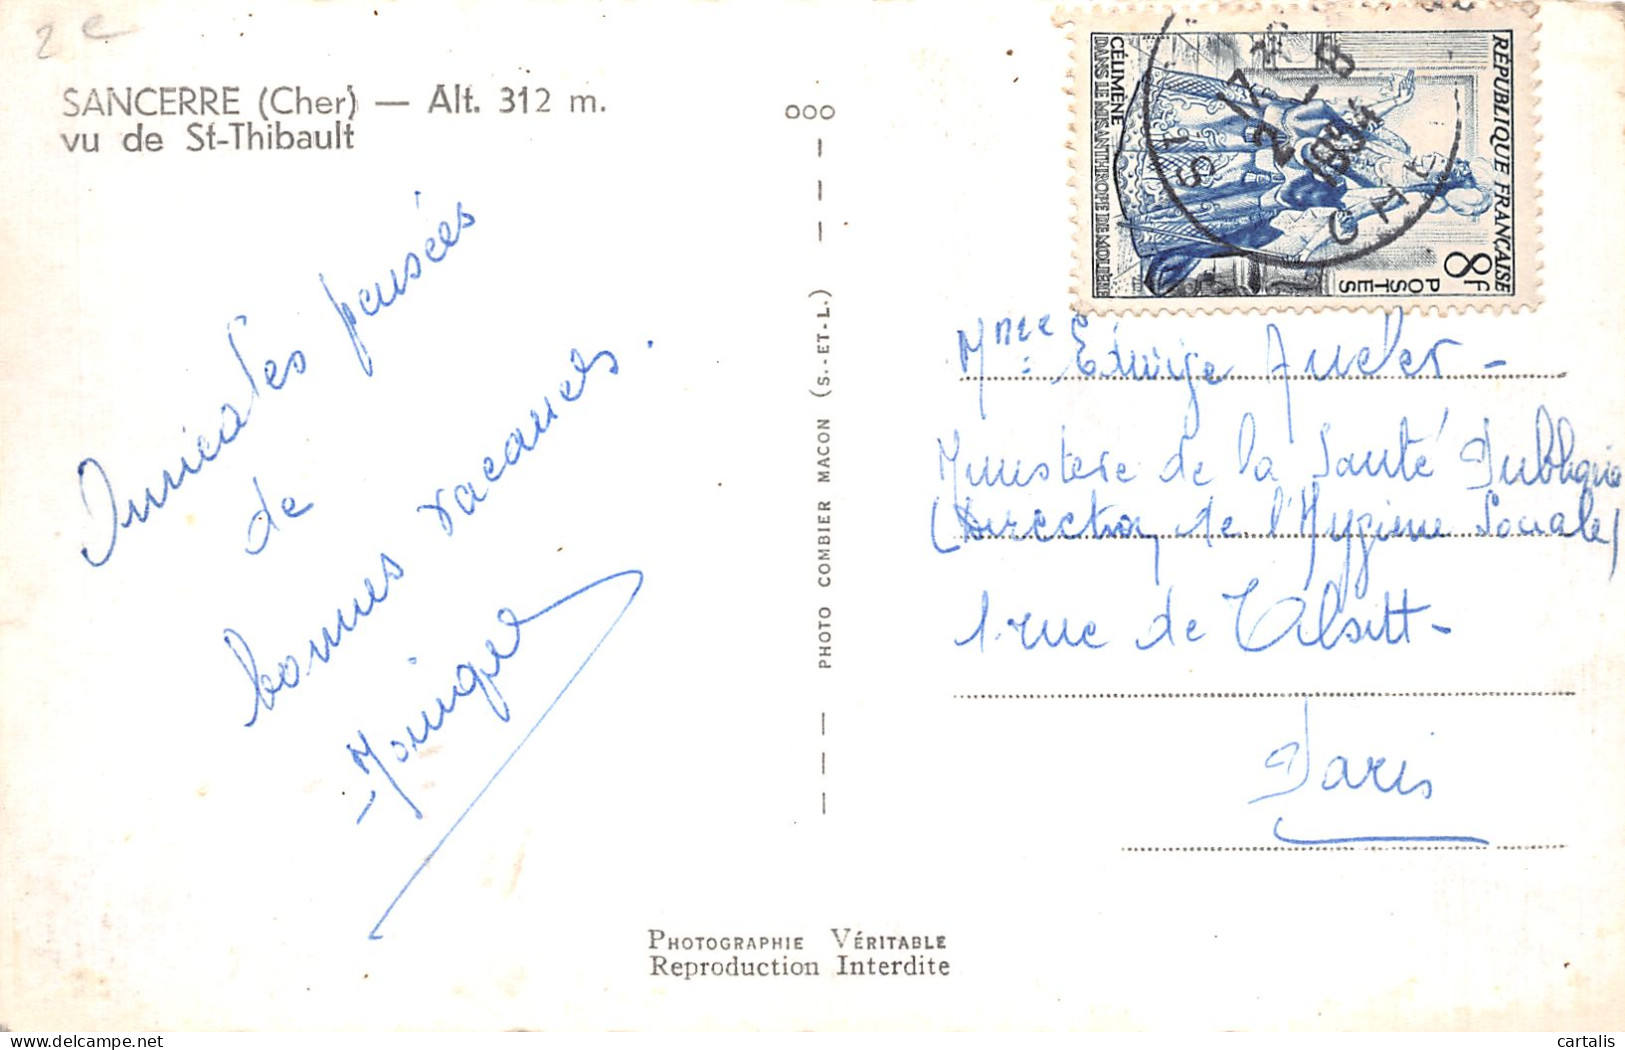 2 e
SANCERRE (Cher) — Alt. 312 m.
vu de St-Thibault
Amicales pensées
de
bonnes vacances.
- Monique
OOO
PHOTO COMBIER MACON (S.-ET-L.)
RÉPUBLIQUE FRANÇAISE
8F
POSTES
CÉLIMÈNE
DANS LE MISANTHROPE DE MOLIÈRE
17 H
2 - 8
1954
CHER
Melle Edwige
Ministère de la Santé Publique
(Direction de l'Hygiène Sociale)
1 rue de Tilsitt -
Paris
PHOTOGRAPHIE VÉRITABLE
Reproduction Interdite
cartalis